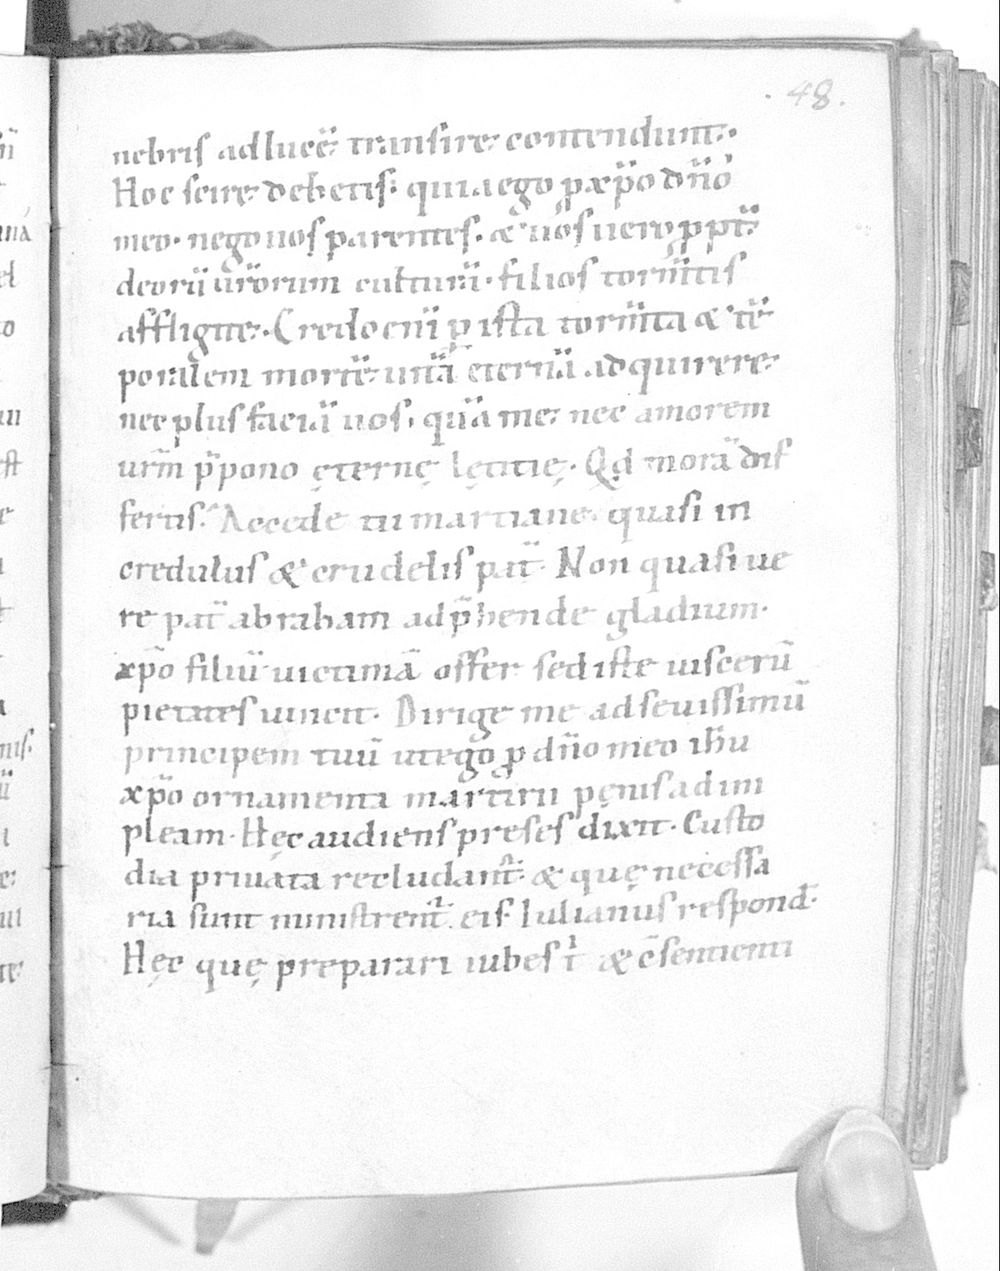 48.
nebris ad lucē transire contendunt.
Hoc scire debetis. quia ego p xp̄o dn̄o
meo. nego uos parentes. & uos uero ꝓpt̄
deorū ur̄orum culturā. filios torm̄tis
affligite. Credo enī p ista torm̄ta & tē
poralem mortē uitā eternā adquirere
nec plus faciā uos. quā me. nec amorem
urm̄ p̄pono ęternę lętitię. Qd morā dif
fertis. Accede tu martiane. quasi in
credulus & crudelis pat̄. Non quasi ue
re pat̄ abraham adp̄hende gladium.
xp̄o filiū uictimā offer sed iste uiscerū
pietates uincit. Dirige me ad seuissimū
principem tuū ut ego ꝓ dn̄o meo ih̄u
xp̄o ornamenta martirii pęnis adim
pleam. Hęc audiens preses dixit. Custo
dia priuata recludant̄. & quę necessa
ria sunt ministrent̄. eis. Iulianus respond̄.
Hęc quę preparari iubes t & c̄sentienti